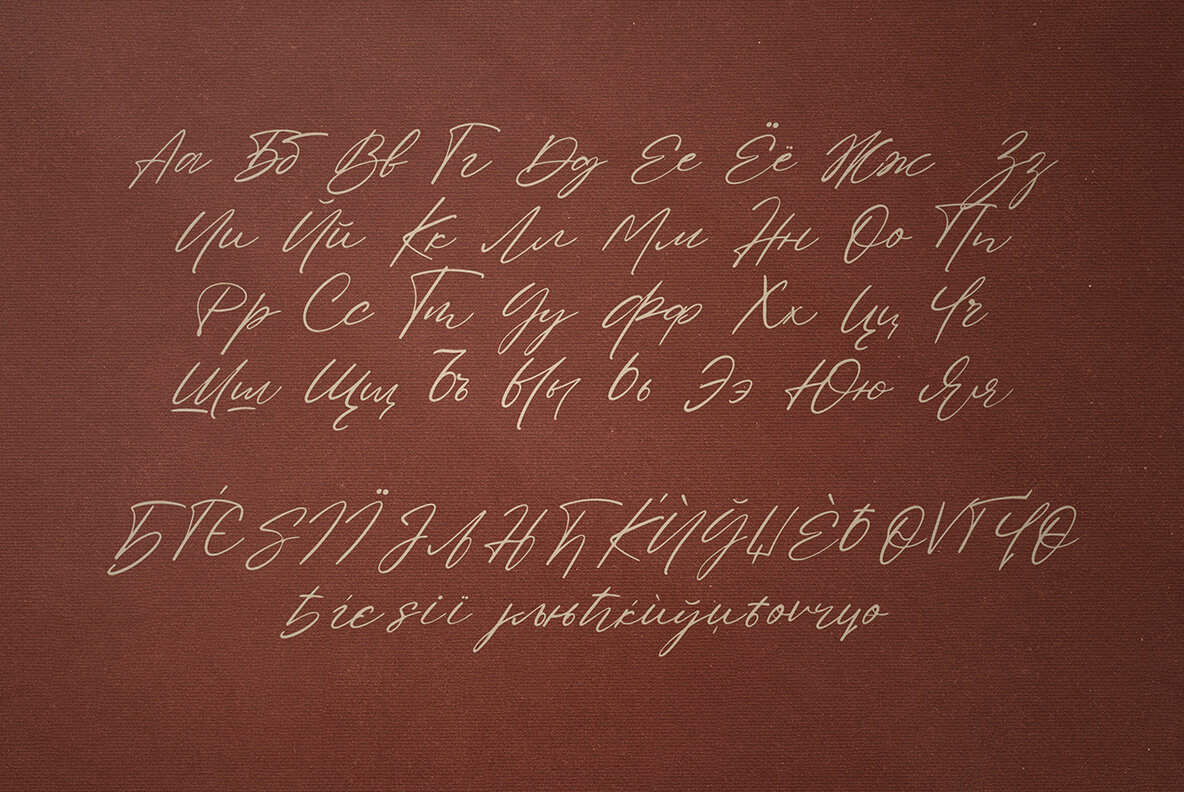 Аа Бб Вв Гг Дд Ее Ёё Жж Зз
Ии Йй Кк Лл Мм Нн Оо Пп
Рр Сс Тт Уу Фф Хх Цц Чч
Шш Щщ Ъъ Ыы Ьь Ээ Юю Яя
ЂЃЄЅІЇЈЉЊЋЌЍЎЏЀѢѲѴҐҶѲ
ђѓєѕії јљњћќѝўџѣѳѵ